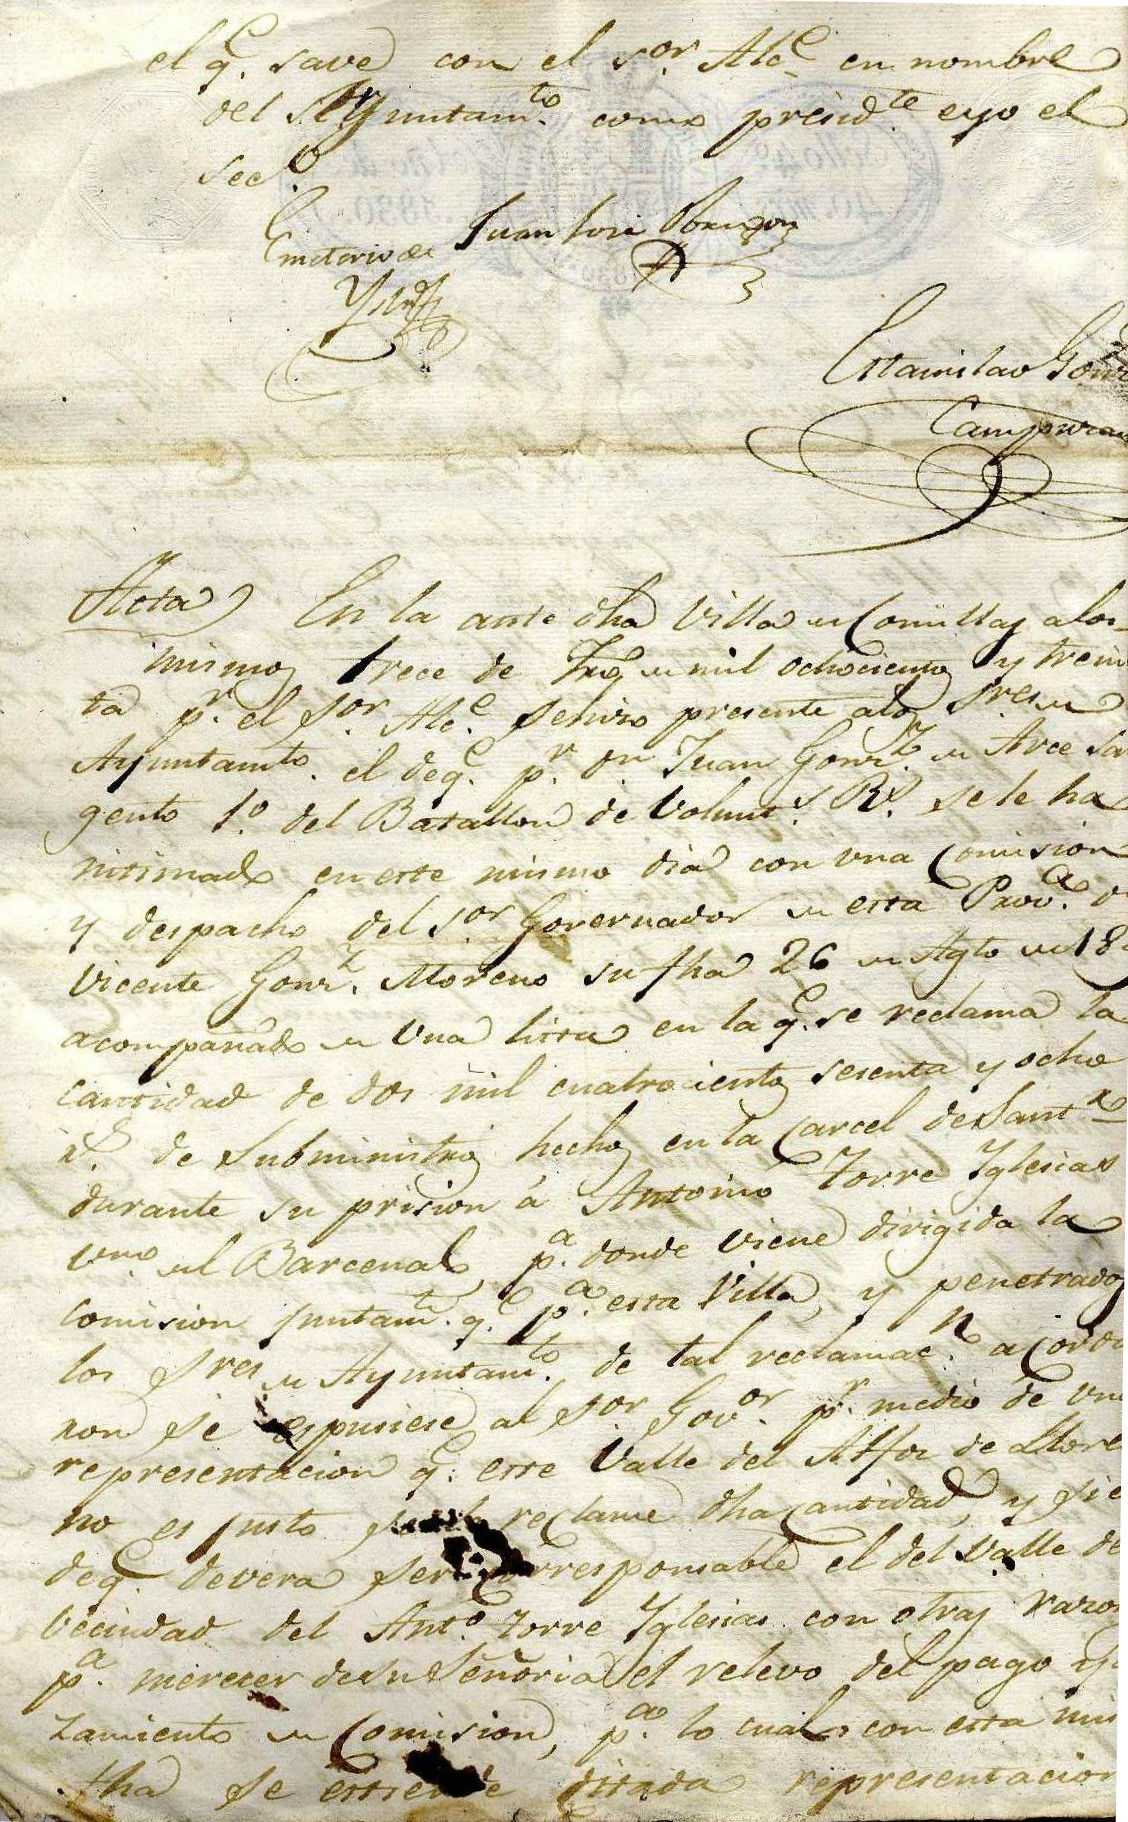 el q.e save con el s.or Alc.e en nombre
del Ayuntam.to como presid.te e yo el
sec.o
Emeterio de Juan Jose
Estanislao Gonz
Campuzan
Acta En la ante dha Villa de Comillas a los
mismos trece de mil ochocientos y trein
ta p.r el s.or Alc.e se hizo presente a los s.res de
Ayuntam.to el de q.e p.r D.n Juan Gonz.z de Arce Sar
gento 1.o del Batallon de Volunt.s R.s se le ha
intimado en este mismo dia con una Comision
y despacho del s.or Governador de esta Prov.a D
Vicente Gonz.z Moreno su fha 26 de Agto de 18
acompañado de una lista en la q.e se reclama la
cantidad de dos mil cuatrocientos sesenta y ocho
r.s de subministros hechos en la Carcel de Sant.r
durante su prision á Antonio Torre Yglesias
v.no del Barcenal, p.a donde viene dirigida la
comision juntam.te q.e p.a esta Villa, y penetrados
los s.res de Ayuntam.to de tal reclamac.n acorda
ron se espusiese al s.or Gov.or p.r medio de una
representacion q.e este Valle del Alfoz de Llore
no es justo reclame dha cantidad, y si e
de q.e devera ser corresponsable el del Valle de
vecindad del Ant.o Torre Yglesias con otras razon
p.a merecer de su Señoria el relevo del pago
zamiento de Comision, p.a lo cual con esta mis
fha se estiende citada representacion